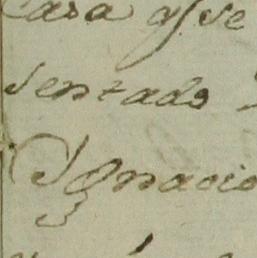 Casa q̃ se
sentado
Ygnacio